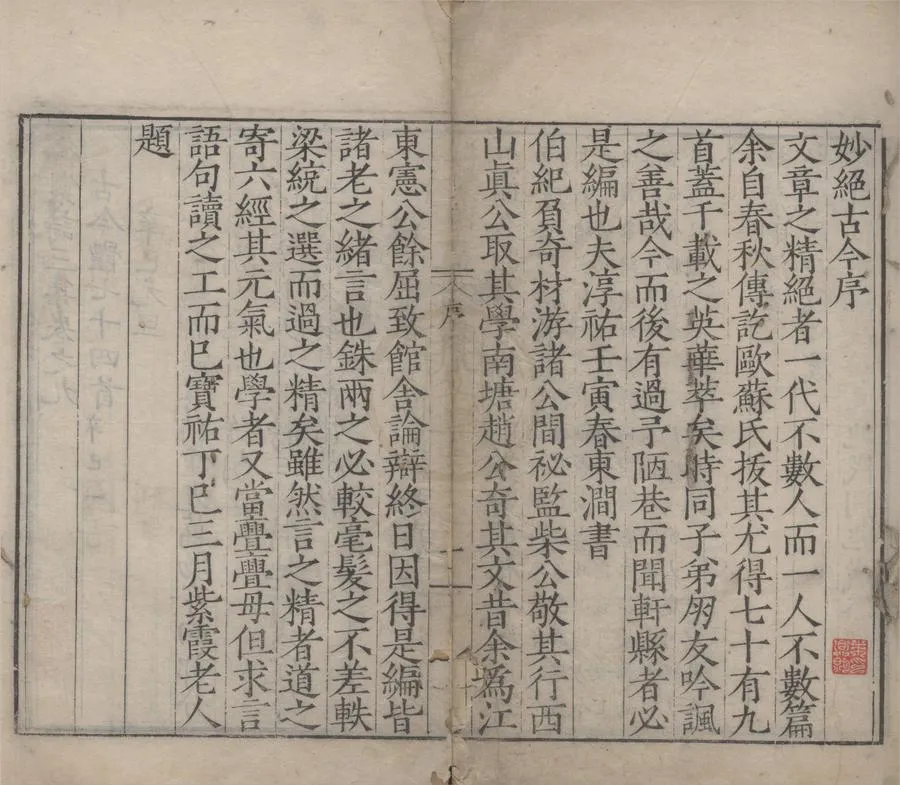 妙絕古今序
文章之精絕者一代不數人而一人不數篇
余自春秋傳訖歐蘇氏拔其尤得七十有九
首蓋千載之英華萃矣時同子弟朋友吟諷
之善哉今而後有過予陋巷而聞軒縣者必
是編也夫淳祐壬寅春東澗書
伯紀負奇材游諸公間祕監柴公敬其行西
山眞公取其學南塘趙公奇其文昔余爲江
序
東憲公餘屈致館舍論辯終日因得是編皆
諸老之緒言也銖兩之必較毫髮之不差軼
梁統之選而過之精矣雖然言之精者道之
寄六經其元氣也學者又當亹亹毋但求言
語句讀之工而已寶祐丁巳三月紫霞老人
題